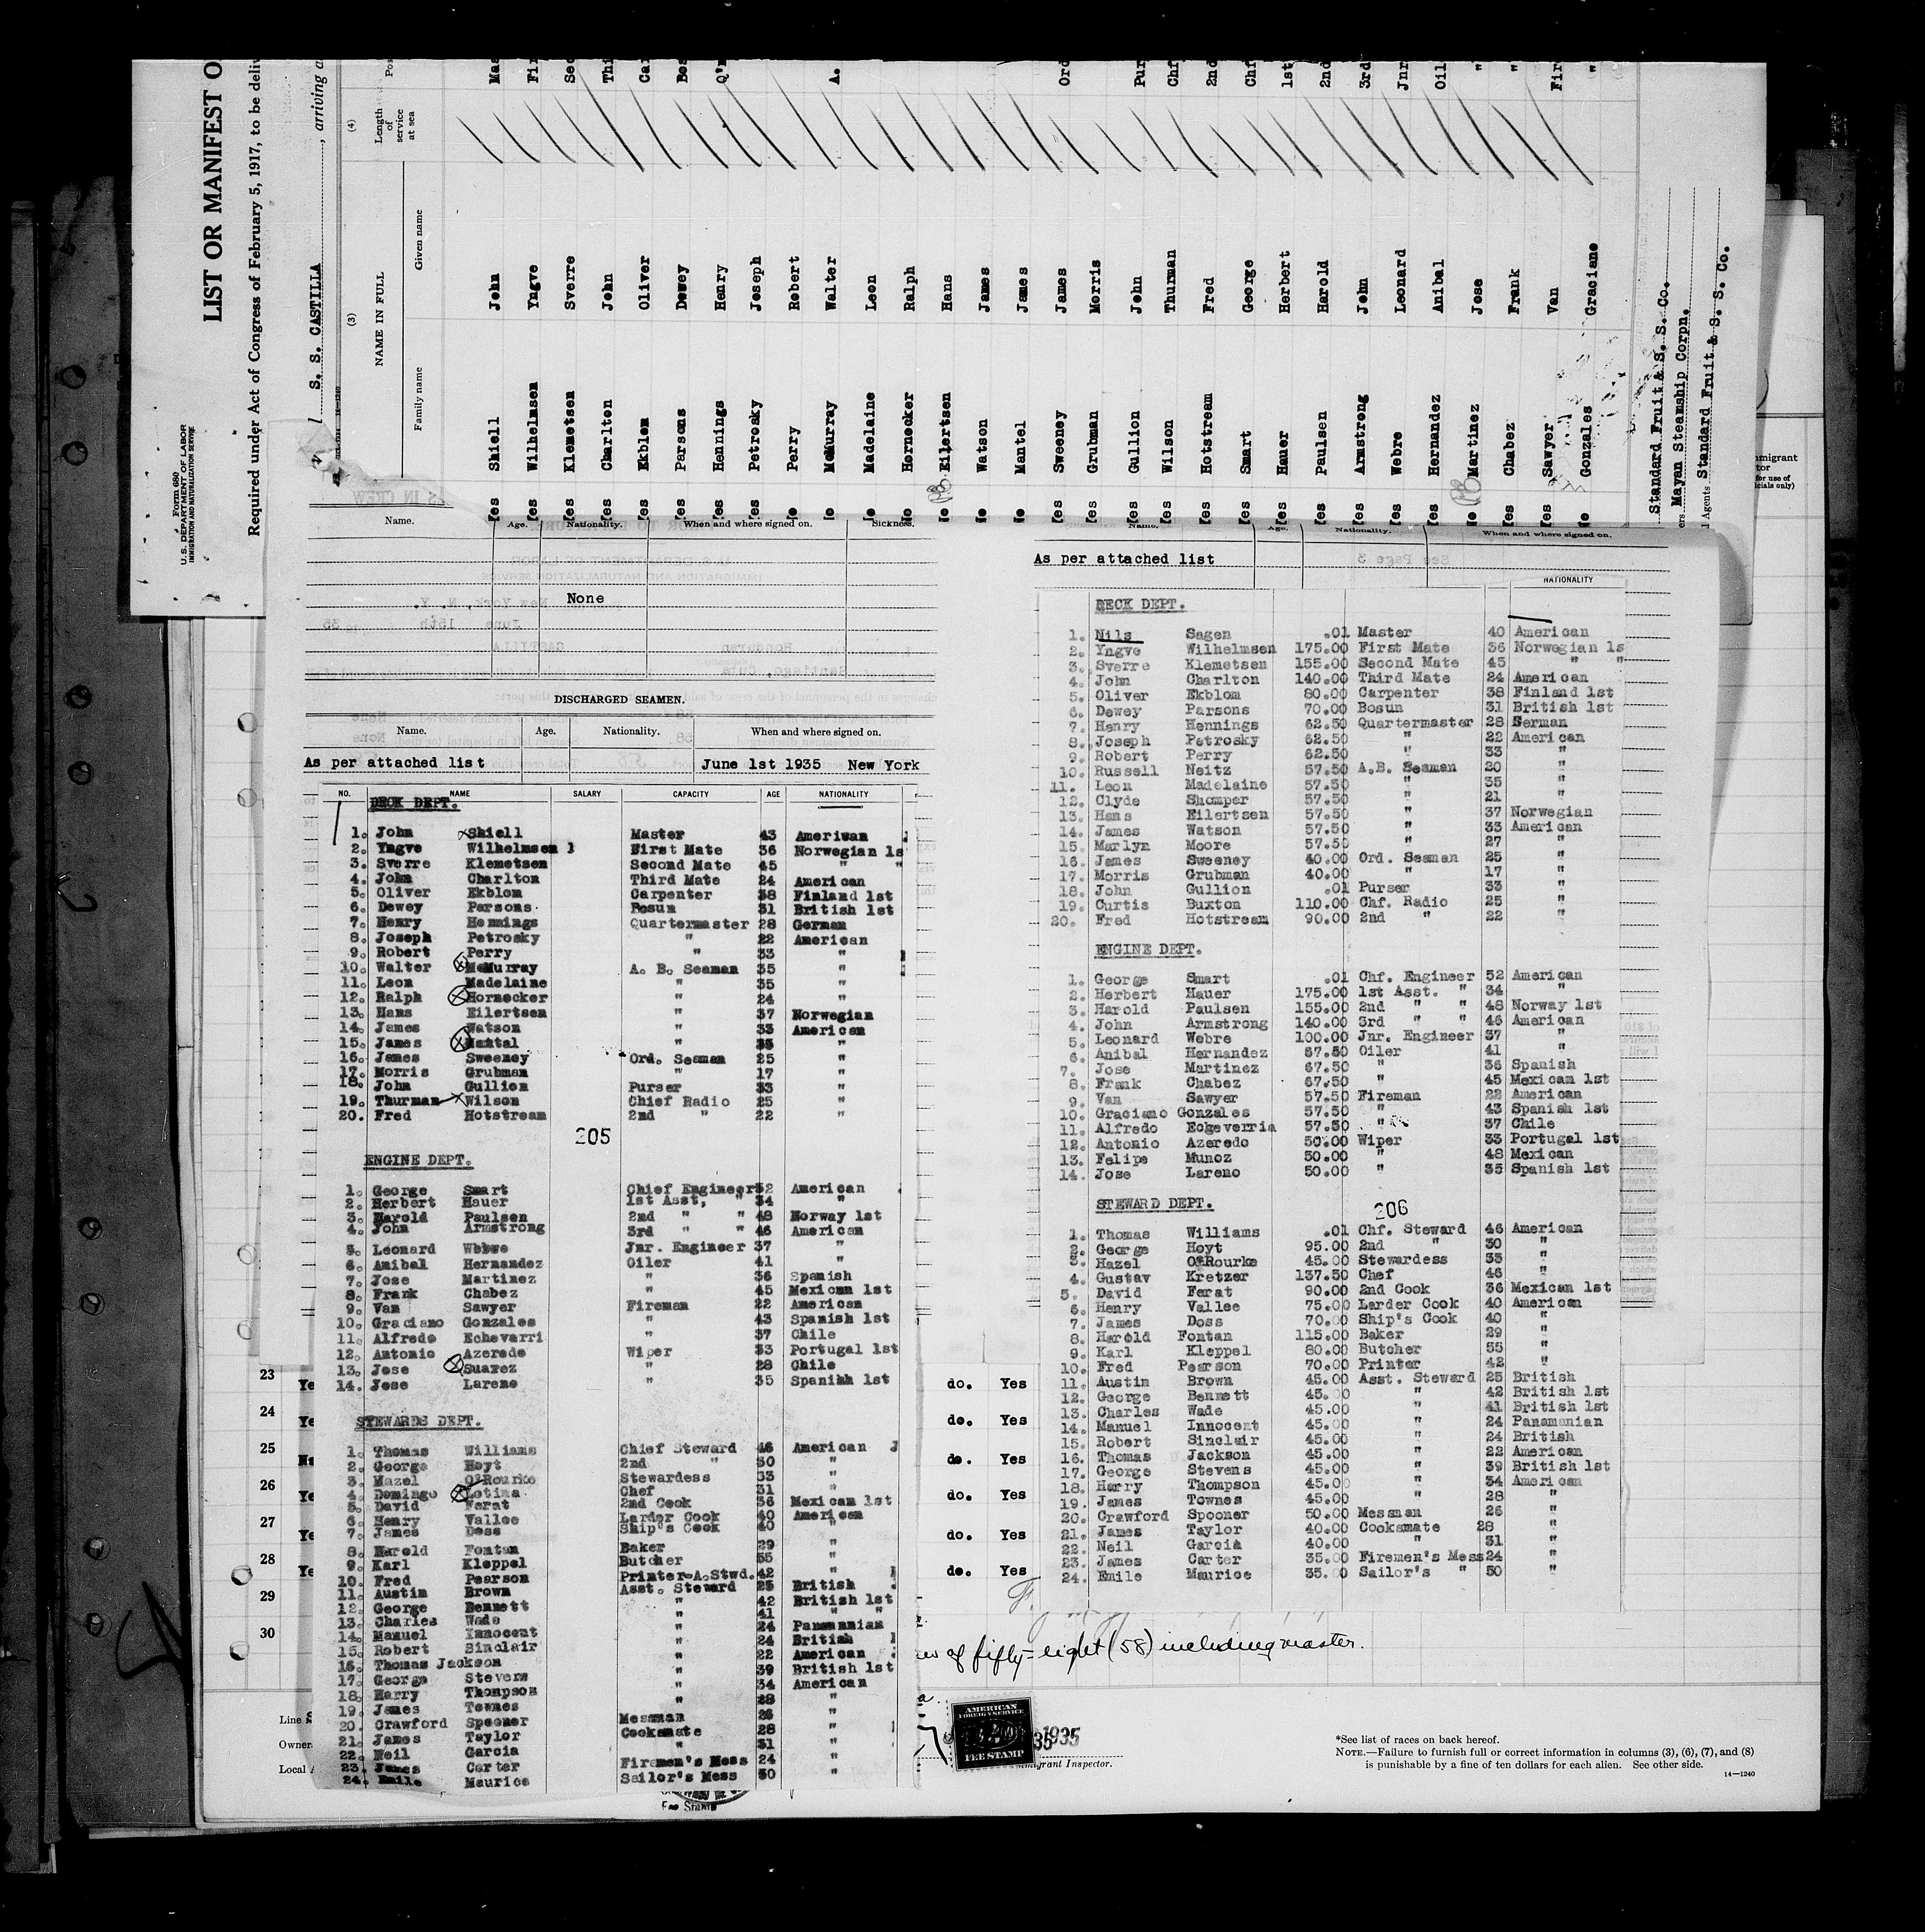 LIST OR MANIFEST O
Required under Act of Congress of February 5, 1917, to be deliv
Form 680
U. S. DEPARTMENT OF LABOR
IMMIGRATION AND NATURALIZATION SERVICE
S. S. CASTILLA , arriving a
(3)
NAME IN FULL
Family name Given name
(4)
Length of service at sea
Pos
Yes Shiell John Mas
Yes Wilhelmsen Yngve Fir
Yes Klemetsen Sverre Sec
Yes Charlton John Thi
Yes Ekblom Oliver Car
Yes Parsons Dewey Bos
Yes Hennings Henry Q'm
Yes Petrosky Joseph
No Perry Robert
No McMurray Walter A.
No Madelaine Leon
No Hornecker Ralph
No Eilertsen Hans
No Watson James
No Mantel James
Yes Sweeney James Ord
Yes Grubman Morris
Yes Gullion John Pur
Yes Wilson Thurman Chf
Yes Hotstream Fred 2nd
Yes Smart George Chf
Yes Hauer Herbert 1st
Yes Paulsen Harold 2nd
Yes Armstrong John 3rd
Yes Webre Leonard Jnr
Yes Hernandez Anibal Oil
No Martinez Jose "
Yes Chabez Frank "
Yes Sawyer Van Fir
No Gonzales Graciano "
Standard Fruit & S. S. Co.
ers Mayan Steamship Corpn.
l Agents Standard Fruit & S. S. Co.
Name. Age. Nationality. When and where signed on. Sickness.
None
DISCHARGED SEAMEN.
Name. Age. Nationality. When and where signed on.
As per attached list June 1st 1935 New York
NO. NAME SALARY CAPACITY AGE NATIONALITY
DECK DEPT.
1. John Shiell Master 43 Ameriwan
2. Yngve Wilhelmsen 1 First Mate 36 Norwegian ls
3. Sverre Klemetsen Second Mate 45 " "
4. John Charlton Third Mate 24 American
5. Oliver Ekblom Carpenter 38 Finland 1st
6. Dewey Parsons Bosun 31 British 1st
7. Henry Hennings Quartermaster 28 German
8. Joseph Petrosky " 22 American
9. Robert Perry " 33 "
10. Walter McMurray A. B. Seaman 35 "
11. Leon Madelaine " 35 "
12. Ralph Hornecker " 24 "
13. Hans Eilertsen " 37 Norwegian
14. James Watson " 33 American
15. James Mantal " 35 "
16. James Sweeney Ord. Seaman 25 "
17. Morris Grubman " 17 "
18. John Gullion Purser 33 "
19. Thurman Wilson Chief Radio 25 "
20. Fred Hotstream 2nd " 22 "
205
ENGINE DEPT.
1. George Smart Chief Engineer 52 American
2. Herbert Hauer 1st Asst, " 34 "
3. Harold Paulsen 2nd " " 48 Norway 1st
4. John Armstrong 3rd " " 46 American
5. Leonard Webre Jnr. Engineer 37 "
6. Anibal Hernandez Oiler 41 "
7. Jose Martinez " 36 Spanish
8. Frank Chabez " 45 Mexican 1st
9. Van Sawyer Fireman 22 American
10. Graciano Gonzales " 43 Spanish 1st
11. Alfredo Echevarri " 37 Chile
12. Antonio Azerede Wiper 33 Portugal 1st
13. Jose Suarez " 28 Chile
14. Jose Lareno " 35 Spanihh 1st
STEWARDS DEPT.
1. Thomas Williams Chief Steward 46 American
2. George Hoyt 2nd " 30 "
3. Hazel O'Rourke Stewardess 33 "
4. Domingo Lotina Chef 31 "
5. David Ferat 2nd Cook 36 Mexican 1st
6. Henry Vallee Larder Cook 40 American
7. James Doss Ship's Cook 40 "
8. Harold Fontan Baker 29 "
9. Karl Kleppel Butcher 55 "
10. Fred Pearson Printer-A.Stwd. 42 "
11. Austin Brown Asst. Steward 25 British
12. George Bennett " 42 British 1st
13. Charles Wade " 41 " "
14. Manuel Innocent " 24 Panamanian
15. Robert Sinclair " 24 British
16. Thomas Jackson " 22 American
17. George Stevens " 39 British 1st
18. Harry Thompson " 34 American
19. James Townes " 28 "
20. Crawford Spooner Messman 26 "
21. James Taylor Cooksmate 28 "
22. Neil Garcia " 31 "
23. James Carter Firemen's Mess 24 "
24. Emile Maurice Sailor's Mess 50 "
Name. Age. Nationality. When and where signed on.
As per attached list
NATIONALITY
DECK DEPT.
1. Nils Sagen .01 Master 40 American
2. Yngve Wilhelmsen 175.00 First Mate 36 Norwegian ls
3. Sverre Klemetsen 155.00 Second Mate 45 " "
4. John Charlton 140.00 Third Mate 24 American
5. Oliver Ekblom 80.00 Carpenter 38 Finland 1st
6. Dewey Parsons 70.00 Bosun 31 British 1st
7. Henry Hennings 62.50 Quartermaster 28 German
8. Joseph Petrosky 62.50 " 22 American
9. Robert Perry 62.50 " 33 "
10. Russell Neitz 57.50 A.B. Seaman 20 "
11. Leon Madelaine 57.50 " 35 "
12. Clyde Shomper 57.50 " 21 "
13. Hans Eilertsen 57.50 " 37 Norwegian
14. James Watson 57.50 " 33 American
15. Marlyn Moore 57.50 " 27 "
16. James Sweeney 40.00 Ord. Seaman 25 "
17. Morris Grubman 40.00 " 17 "
18. John Gullion .01 Purser 33 "
19. Curtis Buxton 110.00 Chf. Radio 25 "
20. Fred Hotstream 90.00 2nd " 22 "
ENGINE DEPT.
1. George Smart .01 Chf. Engineer 52 American
2. Herbert Hauer 175.00 1st Asst. " 34 "
3. Harold Paulsen 155.00 2nd " " 48 Norway 1st
4. John Armstrong 140.00 3rd " " 46 American
5. Leonard Webre 100.00 Jnr. Engineer 37 "
6. Anibal Hernandez 67.50 Oiler 41 "
7. Jose Martinez 67.50 " 36 Spanish
8. Frank Chabez 67.50 " 45 Mexican 1st
9. Van Sawyer 57.50 Fireman 22 American
10. Graciano Gonzales 57.50 " 43 Spanish 1st
11. Alfredo Echeverria 57.50 " 37 Chile
12. Antonio Azeredo 50.00 Wiper 33 Portugal 1st
13. Felipe Munoz 50.00 " 48 Mexican
14. Jose Lareno 50.00 " 35 Spanish 1st
STEWARD DEPT.
206
1. Thomas Williams .01 Chf. Steward 46 American
2. George Hoyt 95.00 2nd " 30 "
3. Hazel O'Rourke 45.00 Stewardess 33 "
4. Gustav Kretzer 137.50 Chef 46 "
5. David Ferat 90.00 2nd Cook 36 Mexican 1st
6. Henry Vallee 75.00 Larder Cook 40 American
7. James Doss 70.00 Ship's Cook 40 "
8. Harold Fontan 115.00 Baker 29 "
9. Karl Kleppel 80.00 Butcher 55 "
10. Fred Pearson 70.00 Printer 42 "
11. Austin Brown 45.00 Asst. Steward 25 British
12. George Bennett 45.00 " 42 British 1st
13. Charles Wade 45.00 " 41 British 1st
14. Manuel Innocent 45.00 " 24 Panamanian
15. Robert Sinclair 45.00 " 24 British
16. Thomas Jackson 45.00 " 22 American
17. George Stevens 45.00 " 39 British 1st
18. Harry Thompson 45.00 " 34 American
19. James Townes 45.00 " 28 "
20. Crawford Spooner 50.00 Messman 26 "
21. James Taylor 40.00 Cooksmate 28 "
22. Neil Garcia 40.00 " 31 "
23. James Carter 35.00 Firemen's Mess 24 "
24. Emile Maurice 35.00 Sailor's " 50 "
23 Ye do. Yes
24 Ye do. Yes
25 do. Yes
26 Ye do. Yes
27 Ye do. Yes
28 Ye do. Yes
29
30
ew of fifty-eight (58) including master.
Line S
Owner
Local A
AMERICAN
FOREIGN SERVICE
FEE STAMP
1935
migrant Inspector.
Fee Stamp
*See list of races on back hereof.
NOTE.—Failure to furnish full or correct information in columns (3), (6), (7), and (8)
is punishable by a fine of ten dollars for each alien. See other side.
14—1240